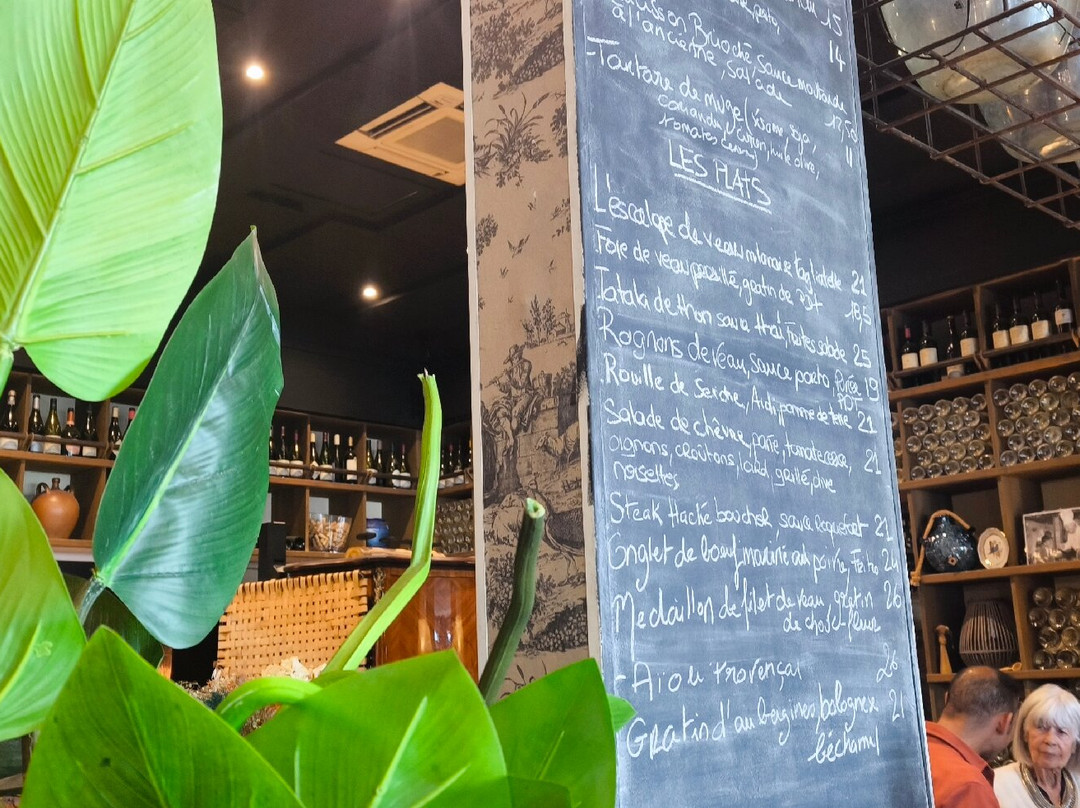 15
Brioché sauce moutarde 14
à l'ancienne, salade
-Tartare de muge (sésame, soja, 17,50
coriandre, citron, huile olive,
tomates
LES PLATS
L'escalope de veau milanaise tagliatelle 21
Foie de veau persillé, gratin de PDT 18,5
Tataki de thon sauce thaï, Frites salade 25
Rognons de veau, sauce porto Purée 19
PDT
Rouille de Seiche, Aioli pomme de terre 21
Salade de chèvre pané, tomate cerise, 21
oignons, croûtons, lard grillé, olive
noisettes
Steak Haché boucher sauce roquefort 21
Onglet de bœuf mariné au poivre, Frites 24
Médaillon de filet de veau, gratin 26
de choux-fleur
-Aioli Provençal 26
Gratin d'aubergines, bolognese 21
béchamel